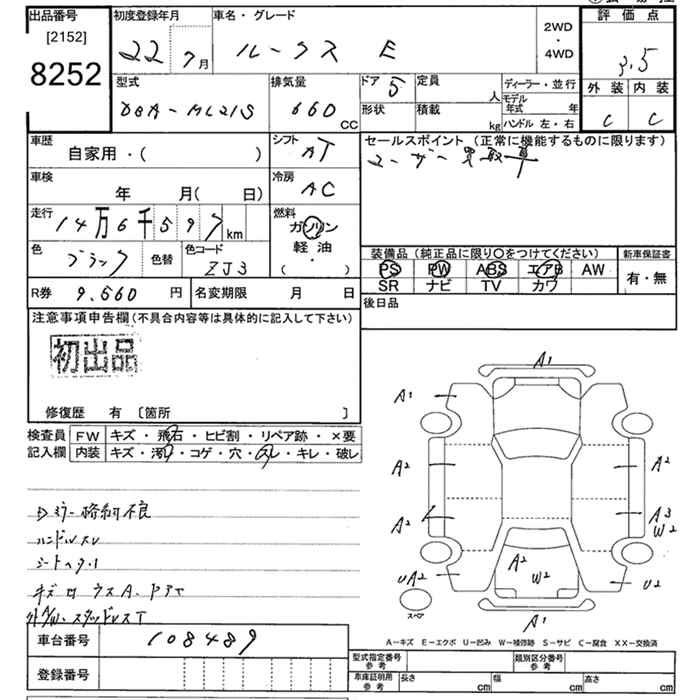 出品番号
[2152]
8252
初度登録年月
22年 7月
車名・グレード
ルークス E
2WD
・
4WD
評価点
3.5
外装 内装
C C
型式
DBA-ML21S
排気量
660 CC
ドア 5
形状
定員 人
積載 kg
ディーラー・並行
モデル年式 年
ハンドル 左・右
車歴
自家用・( )
シフト
AT
セールスポイント (正常に機能するものに限ります)
ユーザー買取車
車検
年 月( 日)
冷房
AC
走行
14万6千597km
燃料
ガソリン
軽油
( ・ )
色
ブラック
色替
色コード
ZJ3
装備品 (純正品に限り〇をつけてください)
PS PW ABS エアB AW
SR ナビ TV カワ
新車保証書
有・無
R券 9.560 円
名変期限 月 日
後日品
注意事項申告欄 (不具合内容等は具体的に記入して下さい)
初出品
修復歴 有 〔箇所 〕
検査員
記入欄
FW キズ・飛石・ヒビ割・リペア跡・×要
内装 キズ・汚れ・コゲ・穴・スレ・キレ・破レ
ハンドルスレ
A1
A1
A2 A2
A2 A3
W2
UA2 A2 W2 U2
スペア
A1
A-キズ E-エクボ U-凹み W-補修跡 S-サビ C-腐食 XX-交換済
車台番号 108489
登録番号
型式指定番号
参考
類別区分番号
参考
車庫証明用
参考
長さ cm 幅 cm 高さ cm